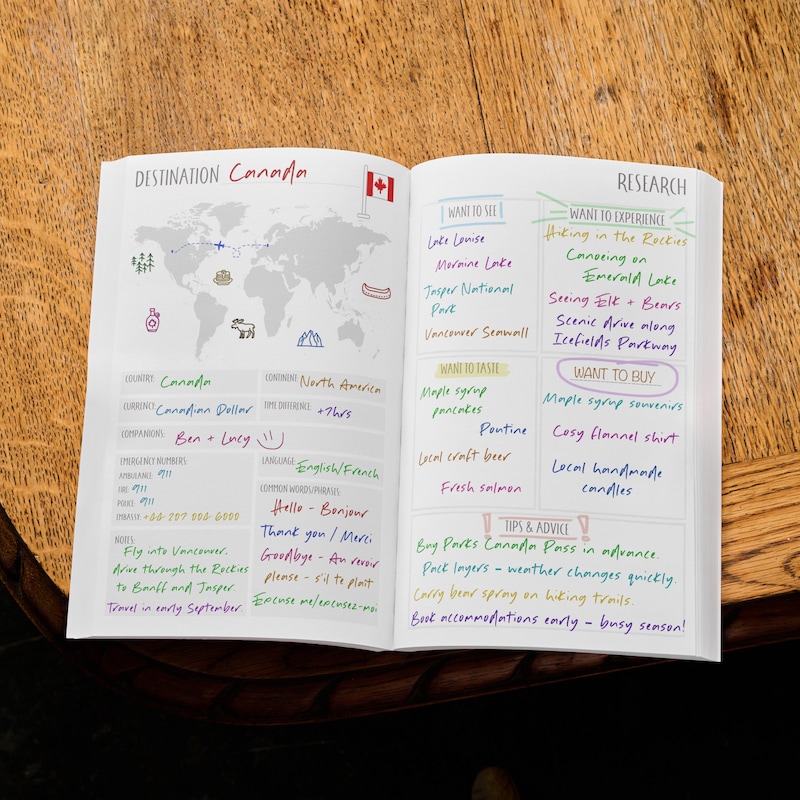 DESTINATION Canada
COUNTRY: Canada
CONTINENT: North America
CURRENCY: Canadian Dollar
TIME DIFFERENCE: +7hrs
COMPANIONS: Ben + Lucy
EMERGENCY NUMBERS:
AMBULANCE: 911
FIRE: 911
POLICE: 911
EMBASSY: +44 207 004 6000
LANGUAGE: English/French
COMMON WORDS/PHRASES:
Hello - Bonjour
Thank you / Merci
Goodbye - Au revoir
please - s'il te plait
Excuse me/excusez-moi
NOTES:
Fly into Vancouver.
drive through the Rockies
to Banff and Jasper.
Travel in early September.
RESEARCH
WANT TO SEE
Lake Louise
Moraine Lake
Jasper National
Park
Vancouver Seawall
WANT TO EXPERIENCE
Hiking in the Rockies
Canoeing on
Emerald Lake
Seeing Elk + Bears
Scenic drive along
Icefields Parkway
WANT TO TASTE
Maple syrup
pancakes
Poutine
Local craft beer
Fresh salmon
WANT TO BUY
Maple syrup souvenirs
Cosy flannel shirt
Local handmade
candles
! TIPS & ADVICE !
Buy Parks Canada Pass in advance.
Pack layers - weather changes quickly.
Carry bear spray on hiking trails.
Book accommodations early - busy season!